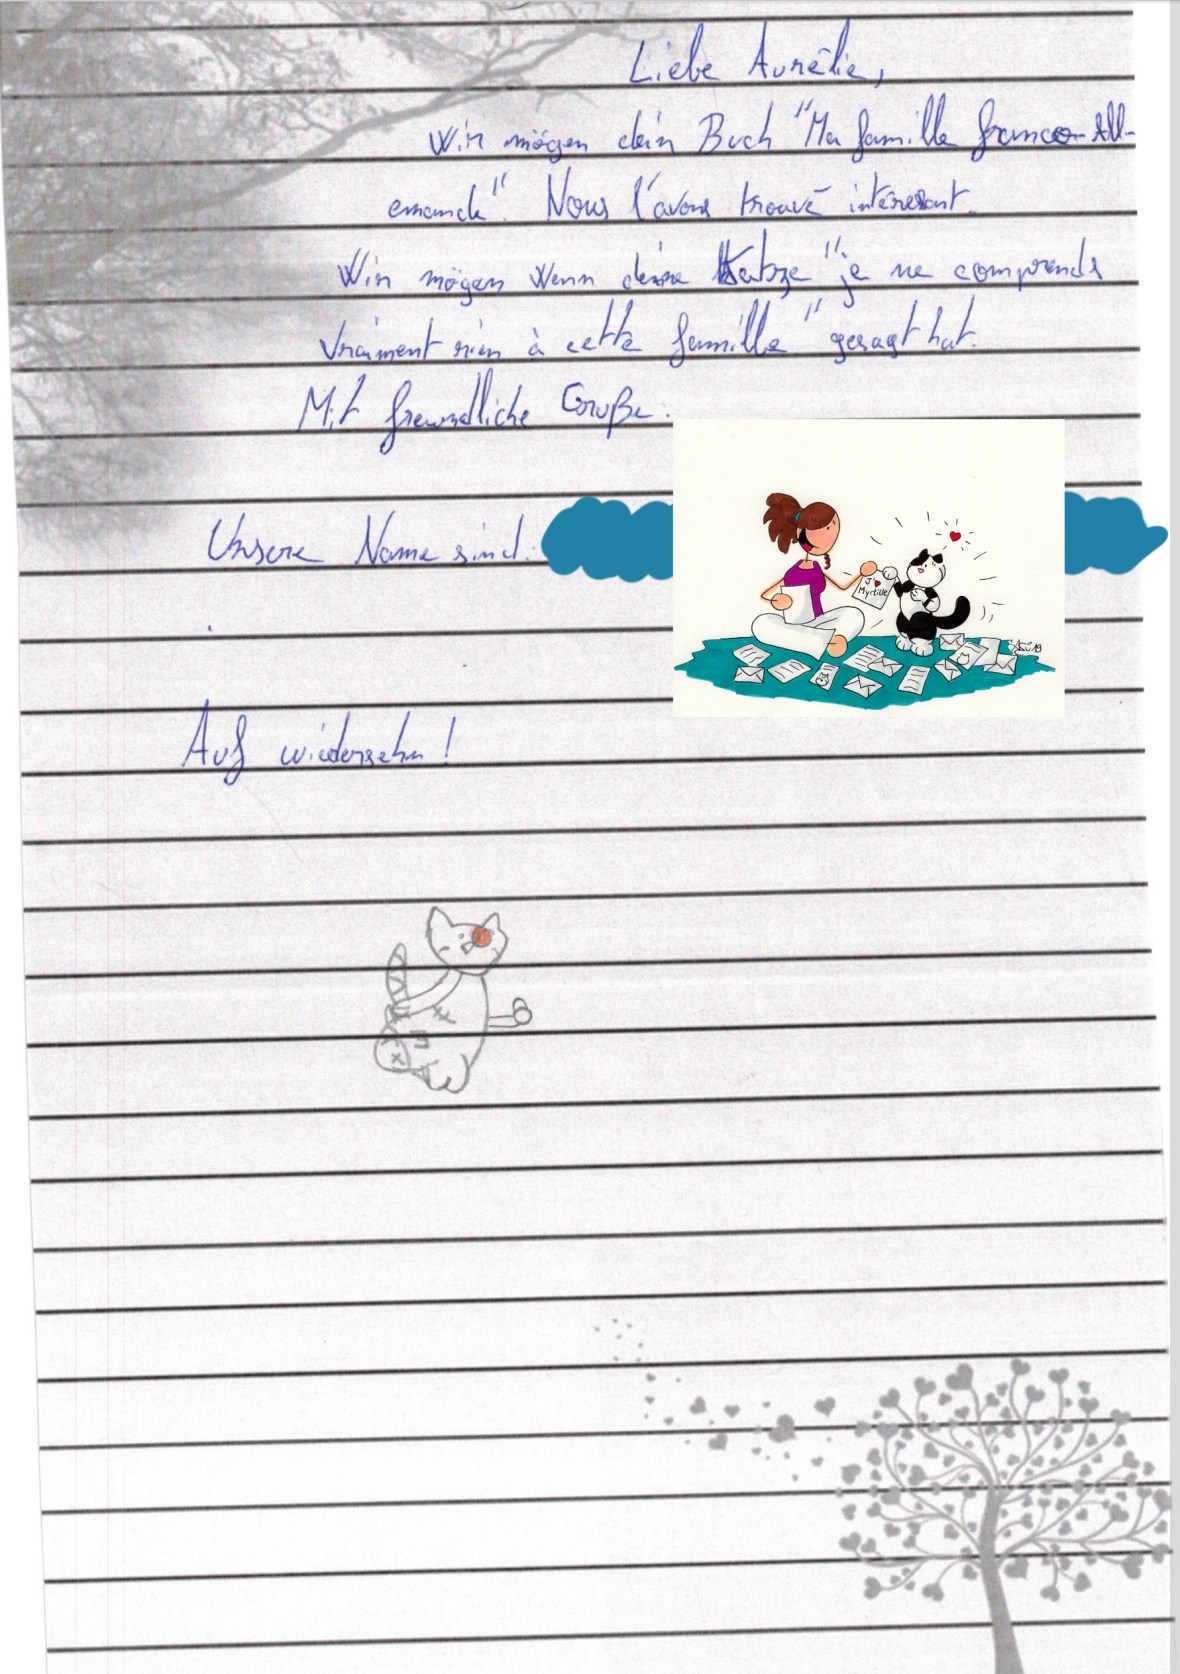 Liebe Aurélie,
Wir mögen dein Buch "Ma famille franco-All-
emande". Nous l'avons trouvé intéressant.
Wir mögen Wenn deine Katze "je ne comprends
vraiment rien à cette famille" gesagt hat.
Mit freundliche Gruße.
Unsere Name sind:
J'
Myrtille
Auf wiedersehn!